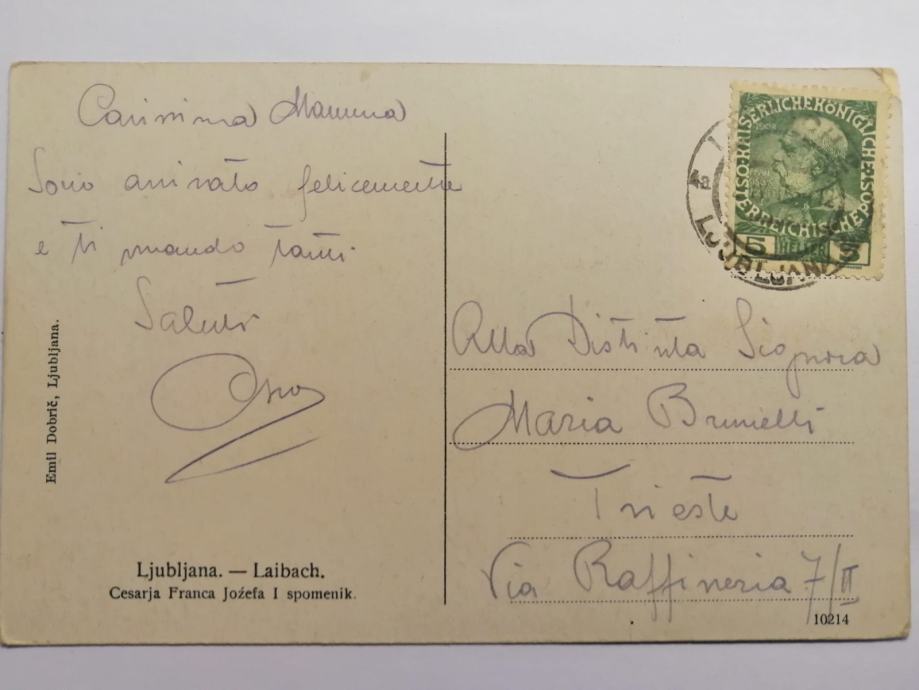 Carissima Mamma
Sono arrivato felicemente
e ti mando tanti
Saluti
Emil Dobrič, Ljubljana.
Ljubljana. — Laibach.
Cesarja Franca Jožefa I spomenik.
KAISERLICHE KÖNIGLICHE ÖSTERREICHISCHE POST
1908
5 5
LJUBLJANA
Alla Distinta Signora
Maria Brunelli
Trieste
Via Raffineria 7/II
10214